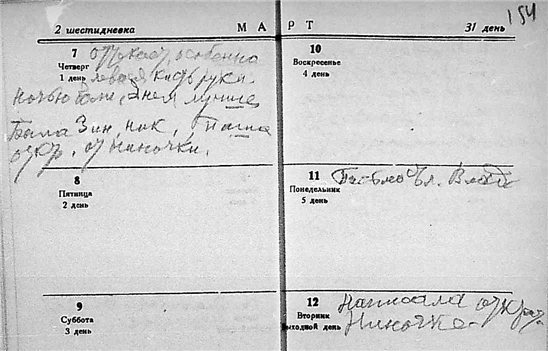 2 шестидневка
МАРТ
31 день
154
7
Четверг
1 день
отекает, особенно
левая кисть руки.
Ночью боли, днем лучше
Была Зин. Ник,
откр. от Ниночки.
8
Пятница
2 день
9
Суббота
3 день
10
Воскресенье
4 день
11
Понедельник
5 день
12
Вторник
Выходной день
Написала откры.
Ниночке